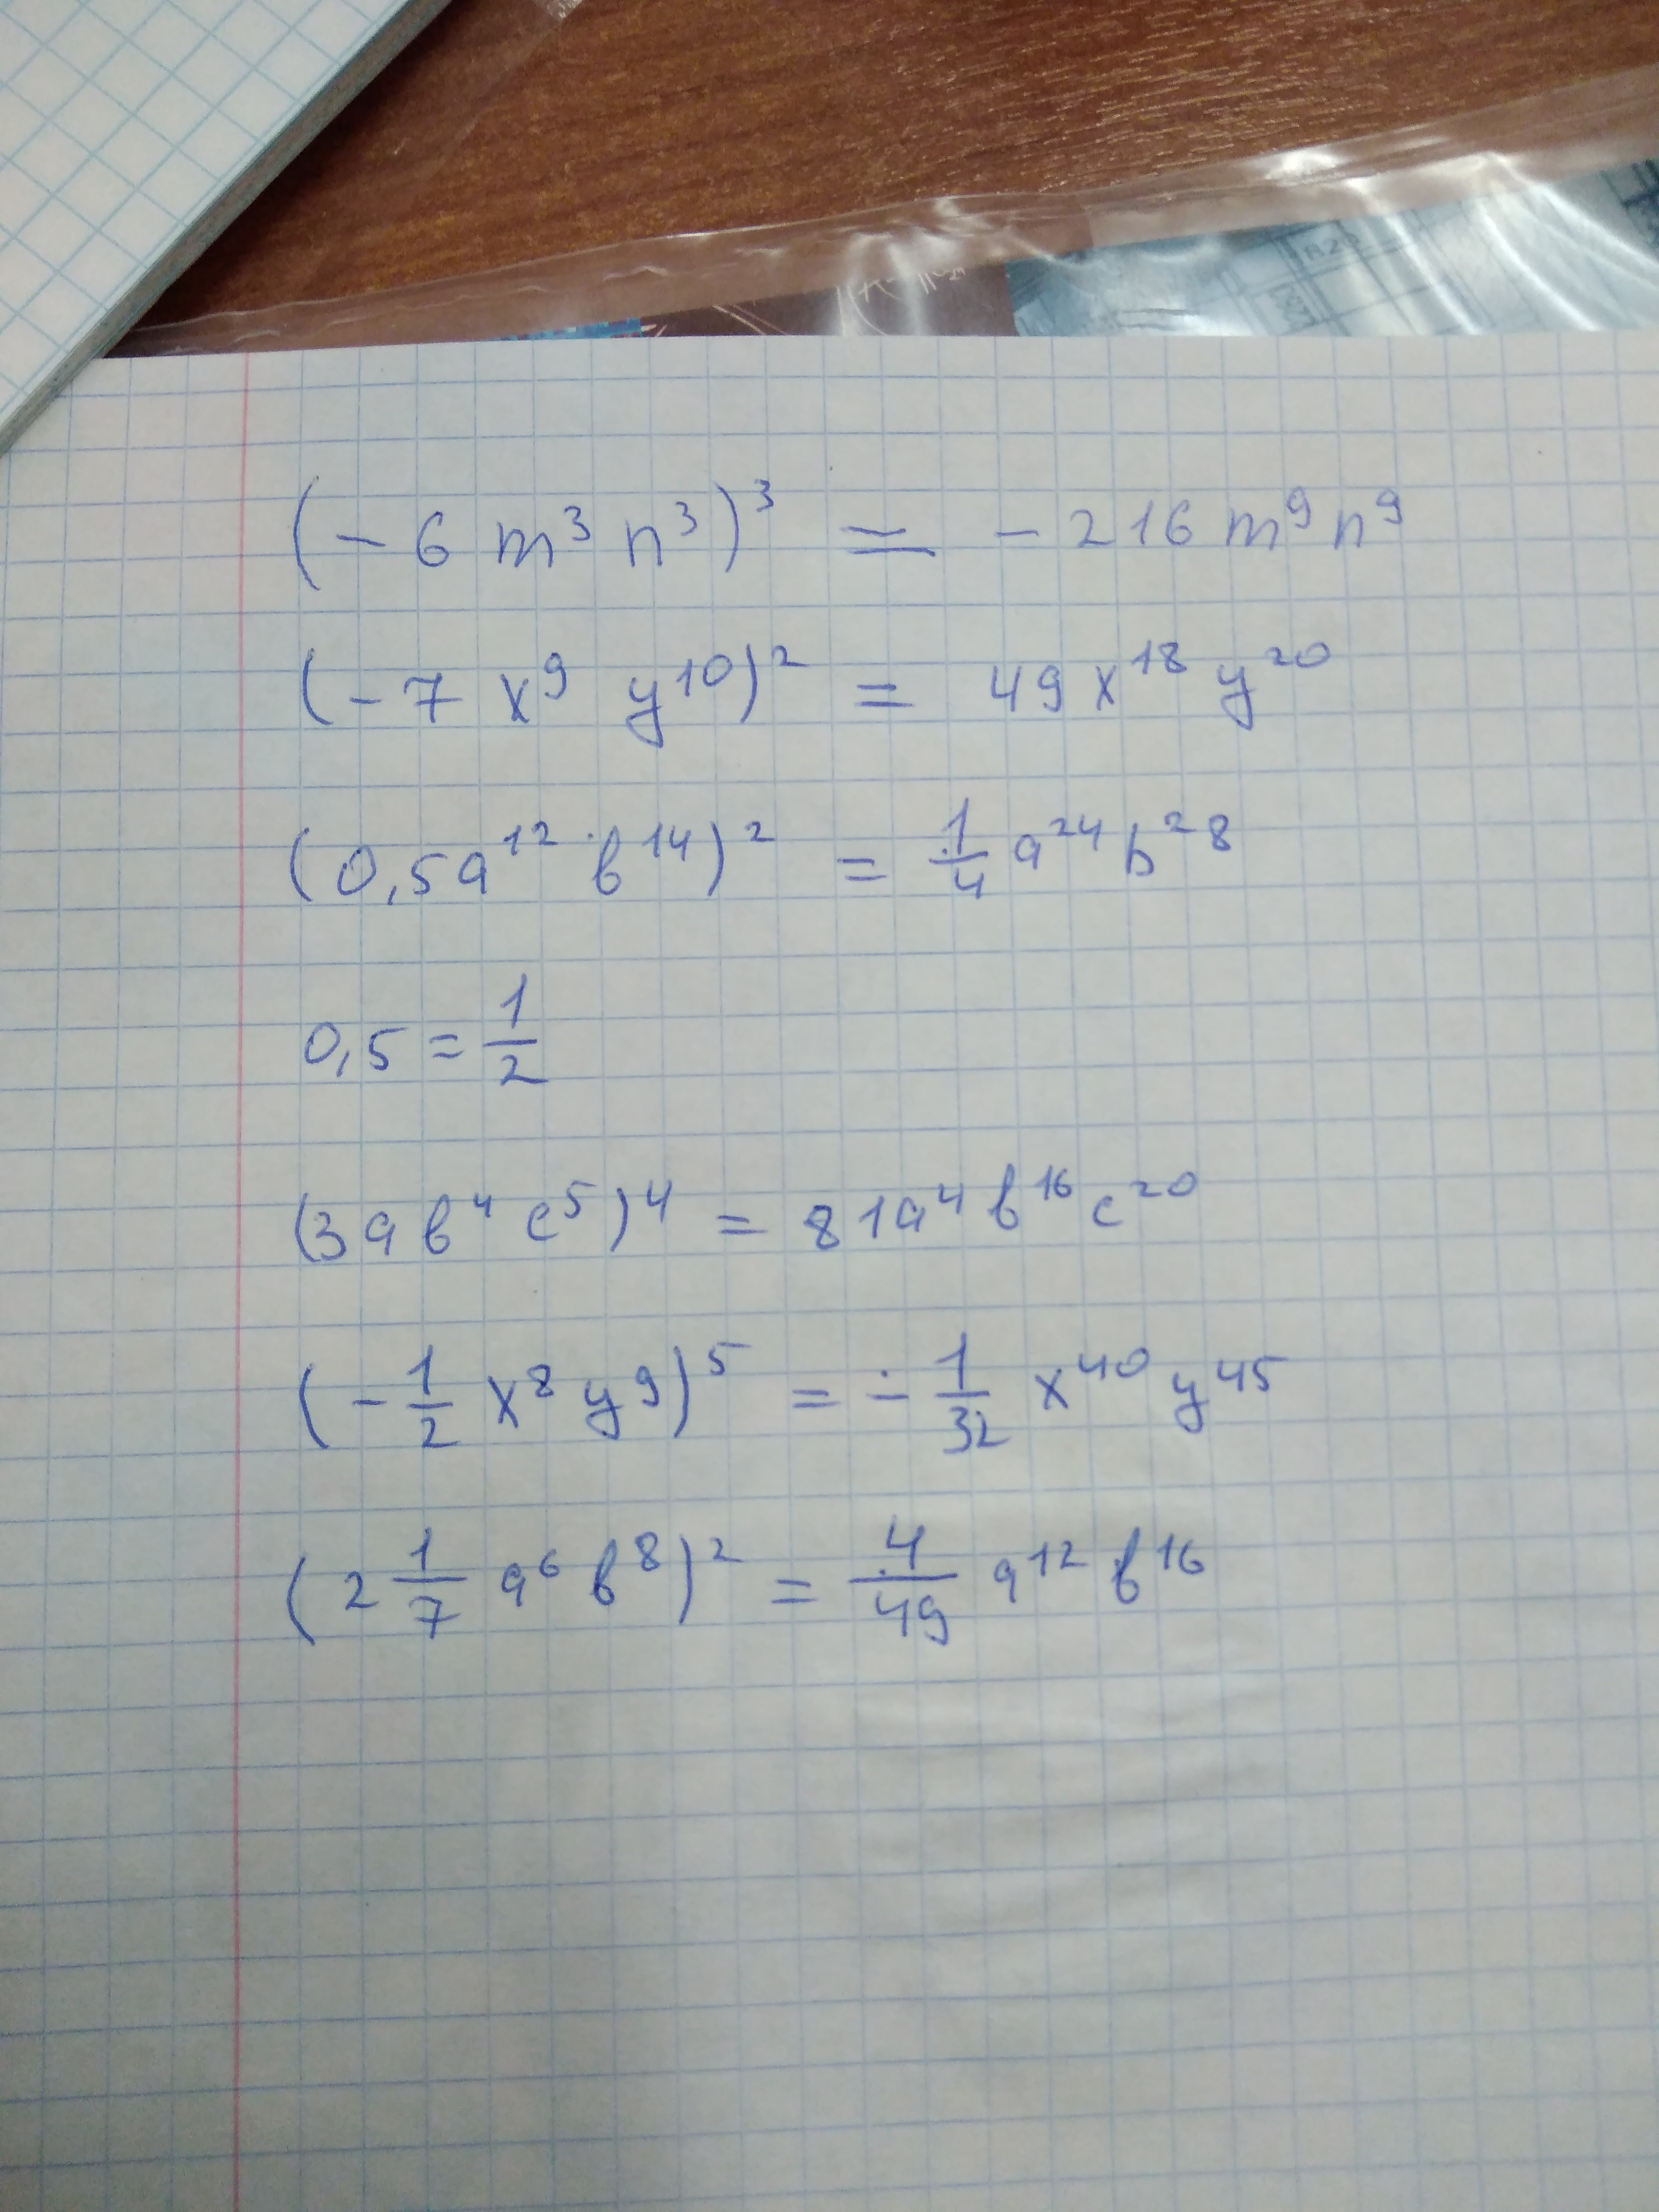 (-6 m³ n³)³ = -216 m⁹ n⁹
(-7 x⁹ y¹⁰)² = 49 x¹⁸ y²⁰
(0,5a¹² b¹⁴)² = 1/4 a²⁴ b²⁸
0,5 = 1/2
(3a b⁴ c⁵)⁴ = 81a⁴ b¹⁶ c²⁰
(-1/2 x⁸ y⁹)⁵ = -1/32 x⁴⁰ y⁴⁵
(2 1/7 a⁶ b⁸)² = 4/49 a¹² b¹⁶